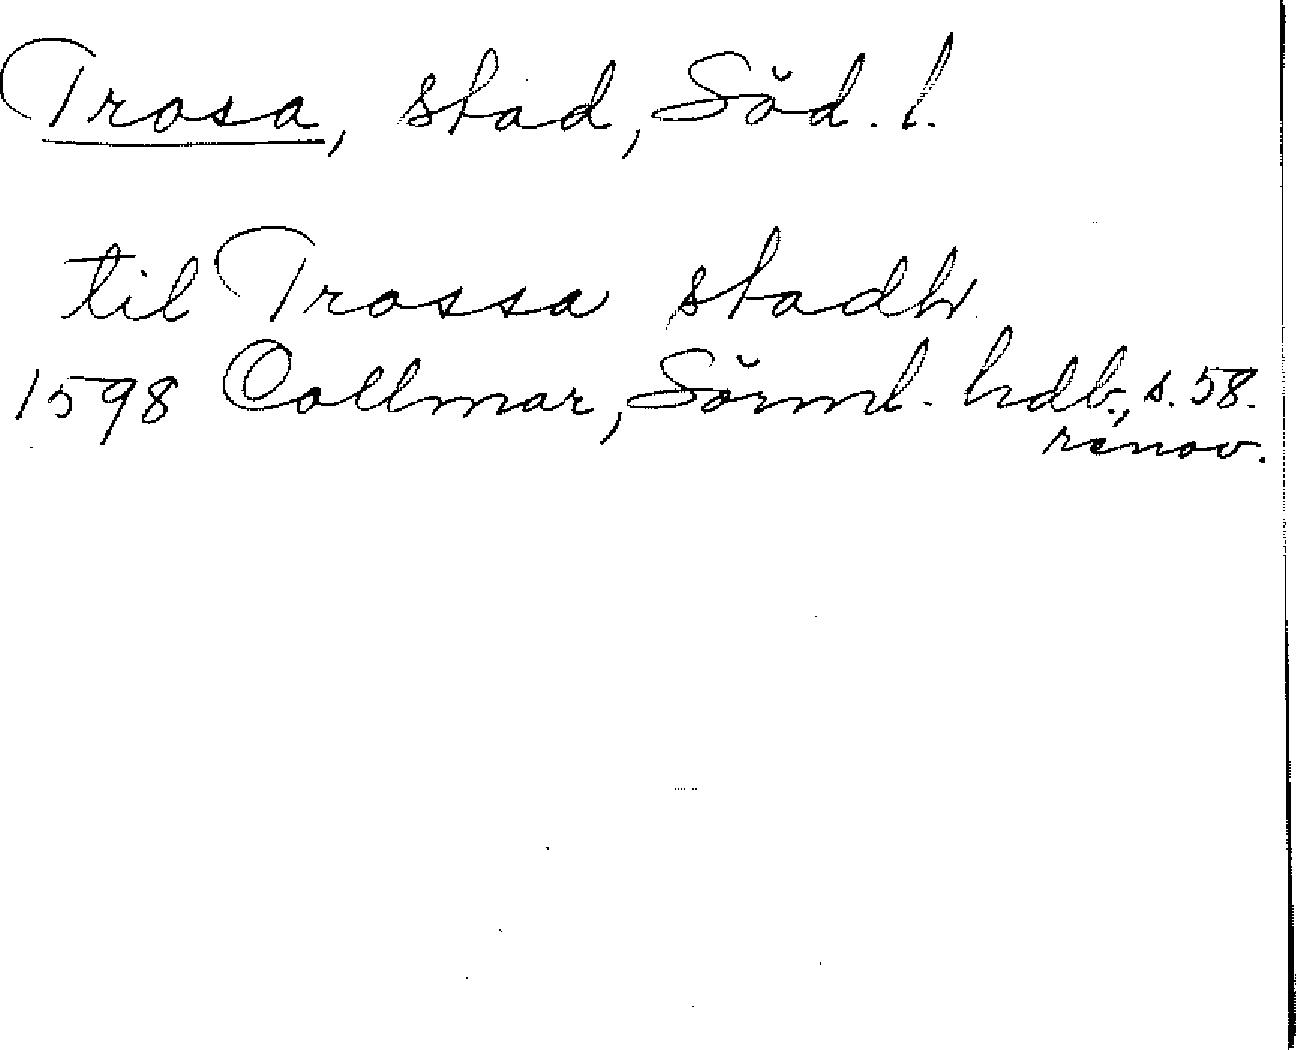 Trosa, stad, Söd. l.
til Trossa stadh
1598 Collmar, Sörml. hdb., s. 58.
renov.